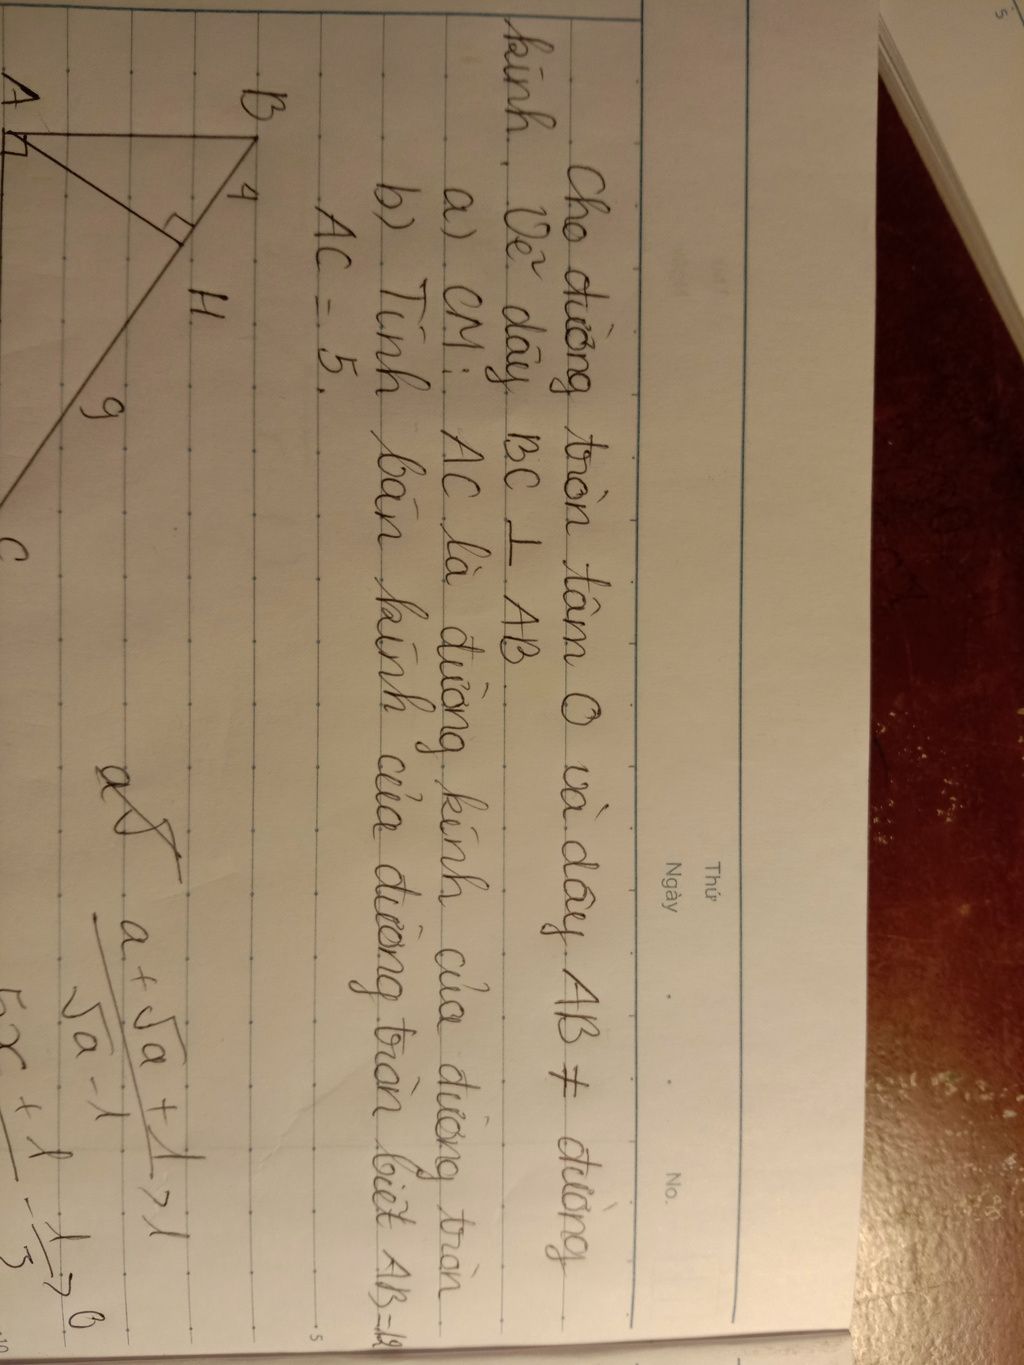 Thứ
Ngày
No.
Cho đường tròn tâm O và dây AB ≠ đường
kính. Vẽ dây BC ⊥ AB
a) CM: AC là đường kính của đường tròn
b) Tính bán kính của đường tròn biết AB = 12
AC = 5.
5
B
4
H
A
9
C
a + √a + 1 > 1
√a - 1
5x + 1 - 1 > 0
3
10
5